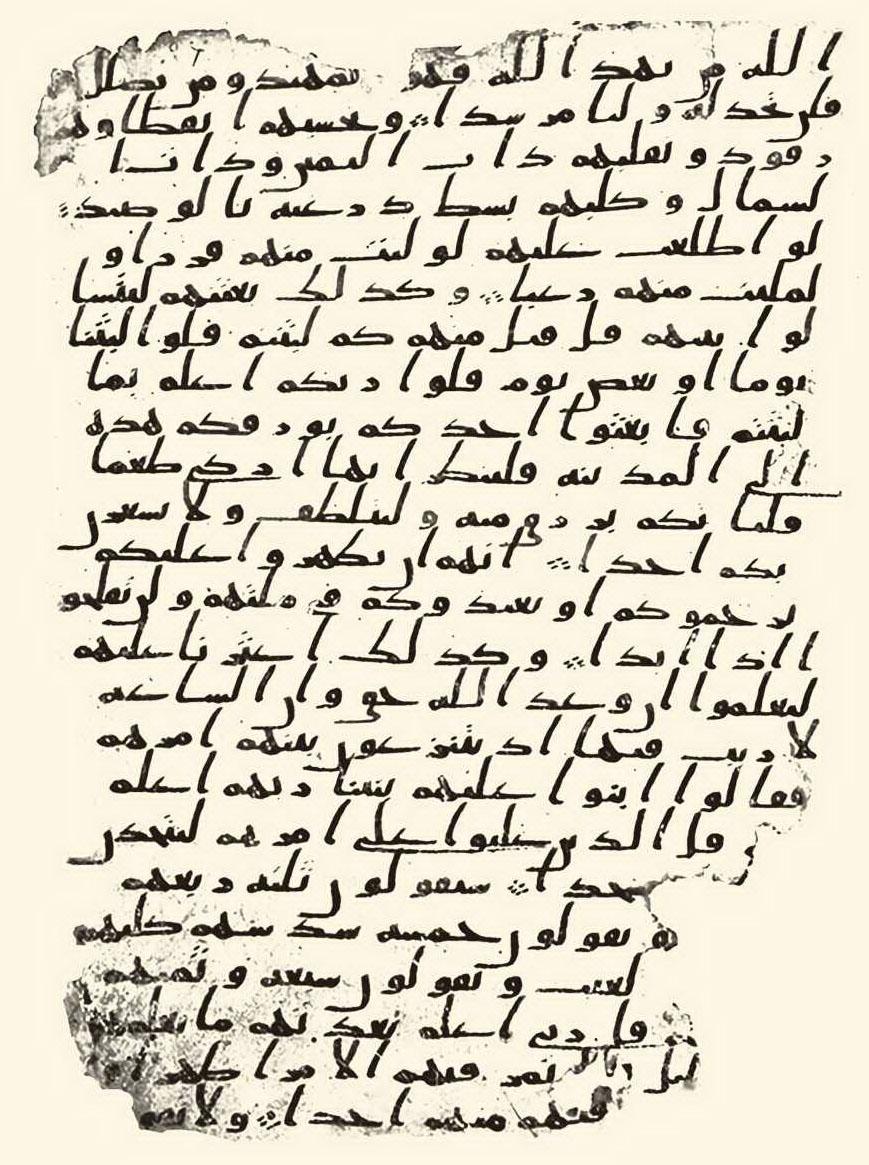 الله من يهد الله فهو لمهتد ومن يضلل
فلن تجد له وليا مرشدا وتحسبهم ايقظا وهم
رقود ونقلبهم ذات اليمين وذات ا
لشمال وكلبهم بسط ذرعيه بالوصيد
لو اطلعت عليهم لوليت منهم فررا و
لمليت منهم رعبا وكذلك بعثنهم ليتسا
لوا بينهم قل قيل منهم كم لبثتم قلوا لبثنا
يوما او بعض يوم قلوا ربكم اعلم بما
لبثتم فابعثوا احدكم بورقكم هذه
الى المدينه فلينظر ايها ازكى طعما
فلياتكم برزق منه وليتلطف ولا يشعرن
بكم احدا انهم ان يظهروا عليكم
يرجموكم او يعيدوكم في ملتهم ولن تفلحو
ا اذا ابدا وكذلك اعثرنا عليهم
ليعلموا ان وعد الله حق وان الساعه
لا ريب فيها اذ يتنزعون بينهم امرهم
فقالوا ابنوا عليهم بنينا ربهم اعلم
قل الذين غلبوا على امرهم لنتخذن
جدا سيقولون ثلثه ربعهم
م يقولون خمسه سدسهم كلبهم
لغيب ويقولون سبعه وثمنهم
قل ربي اعلم بعدتهم ما يعلمهم
ليل تمر فيهم الا مرا ظهرا
فتهم منهم احدا ولا تقو